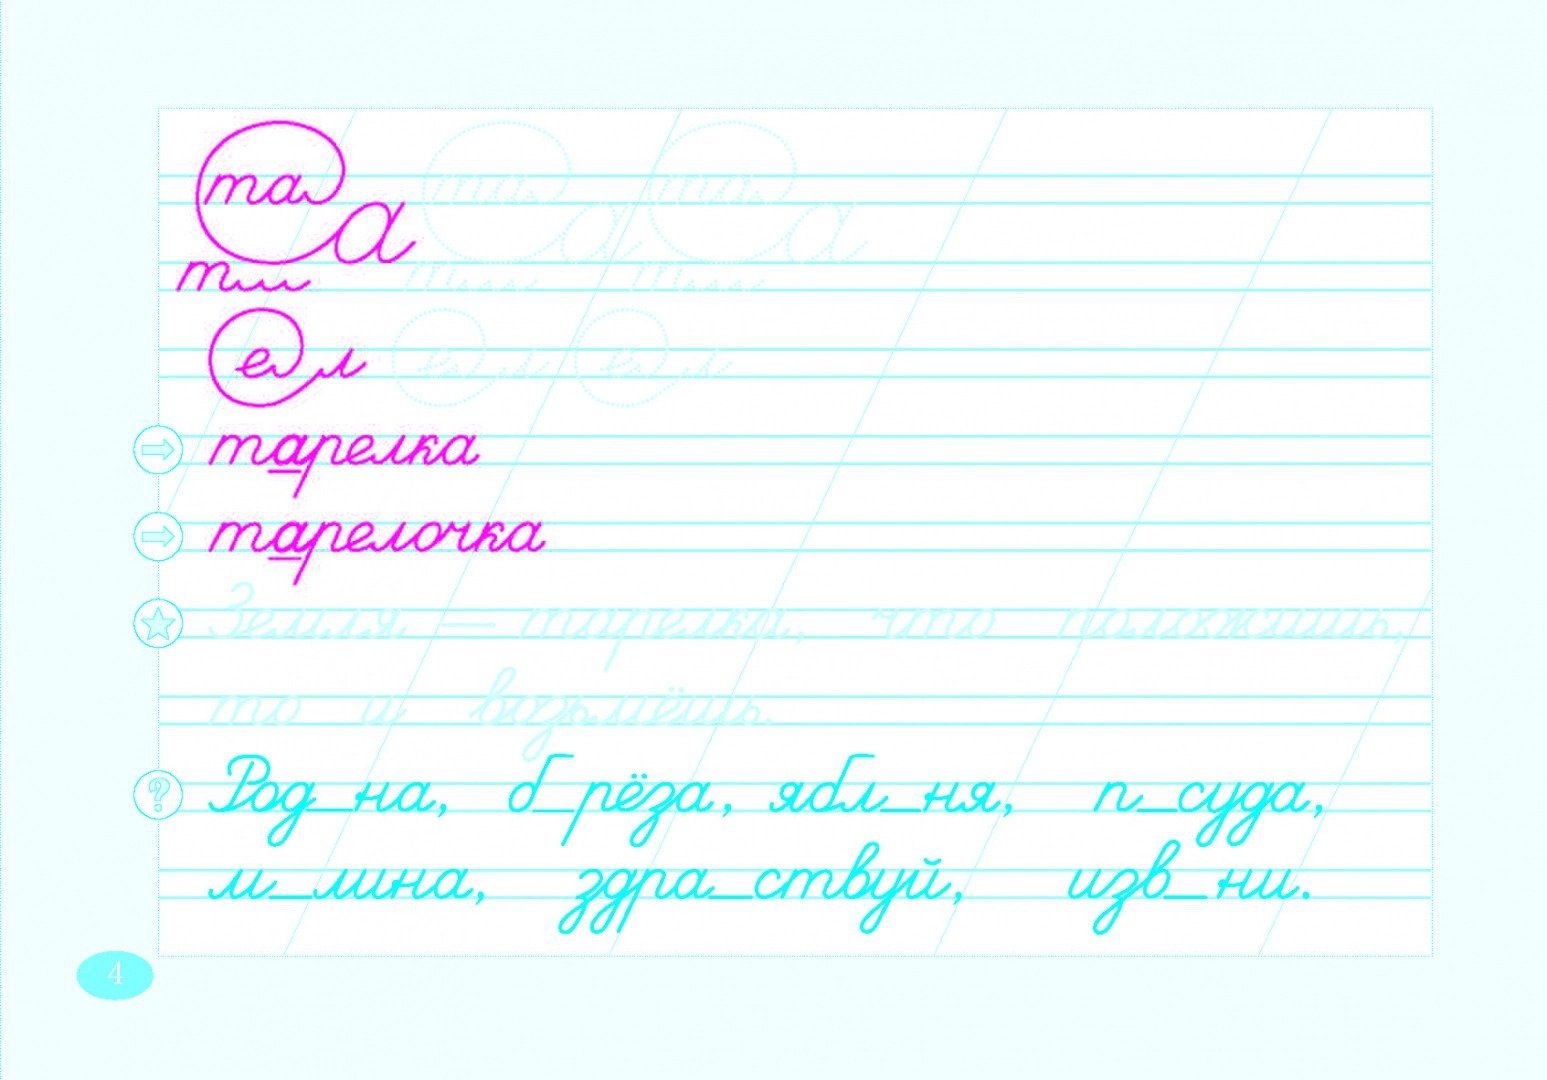 та а та а та а
т т т
е л е л е л
тарелка
тарелочка
Земля — тарелка, что положишь,
то и возьмёшь.
Род_на, б_рёза, ябл_ня, п_суда,
м_лина, здра_ствуй, изв_ни.
4